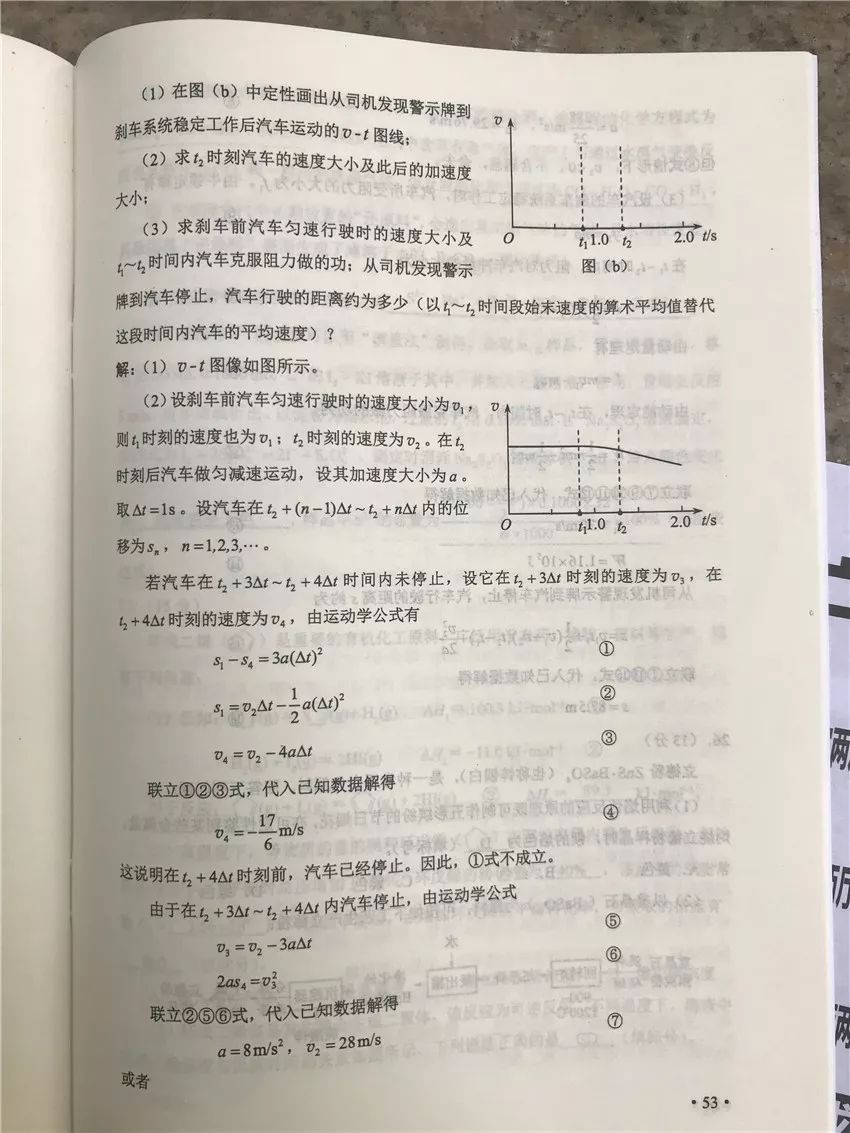 (1)在图(b)中定性画出从司机发现警示牌到
刹车系统稳定工作后汽车运动的v-t图线;
(2)求t₂时刻汽车的速度大小及此后的加速度
大小;
(3)求刹车前汽车匀速行驶时的速度大小及
t₁~t₂时间内汽车克服阻力做的功;从司机发现警示
v
O
t₁ 1.0 t₂ 2.0 t/s
图(b)
牌到汽车停止,汽车行驶的距离约为多少(以t₁~t₂时间段始末速度的算术平均值替代
这段时间内汽车的平均速度)?
解:(1)v-t图像如图所示。
(2)设刹车前汽车匀速行驶时的速度大小为v₁,
则t₁时刻的速度也为v₁;t₂时刻的速度为v₂。在t₂
时刻后汽车做匀减速运动,设其加速度大小为a。
取Δt=1s。设汽车在t₂+(n-1)Δt~t₂+nΔt内的位
移为sₙ,n=1,2,3,…。
v
O
t₁ 1.0 t₂ 2.0 t/s
若汽车在t₂+3Δt~t₂+4Δt时间内未停止,设它在t₂+3Δt时刻的速度为v₃,在
t₂+4Δt时刻的速度为v₄,由运动学公式有
s₁-s₄=3a(Δt)² ①
s₁=v₂Δt-1/2a(Δt)² ②
v₄=v₂-4aΔt ③
联立①②③式,代入已知数据解得
v₄=-17/6 m/s ④
这说明在t₂+4Δt时刻前,汽车已经停止。因此,①式不成立。
由于在t₂+3Δt~t₂+4Δt内汽车停止,由运动学公式
v₃=v₂-3aΔt ⑤
2as₄=v₃² ⑥
联立②⑤⑥式,代入已知数据解得
a=8m/s²,v₂=28m/s ⑦
或者
·53·